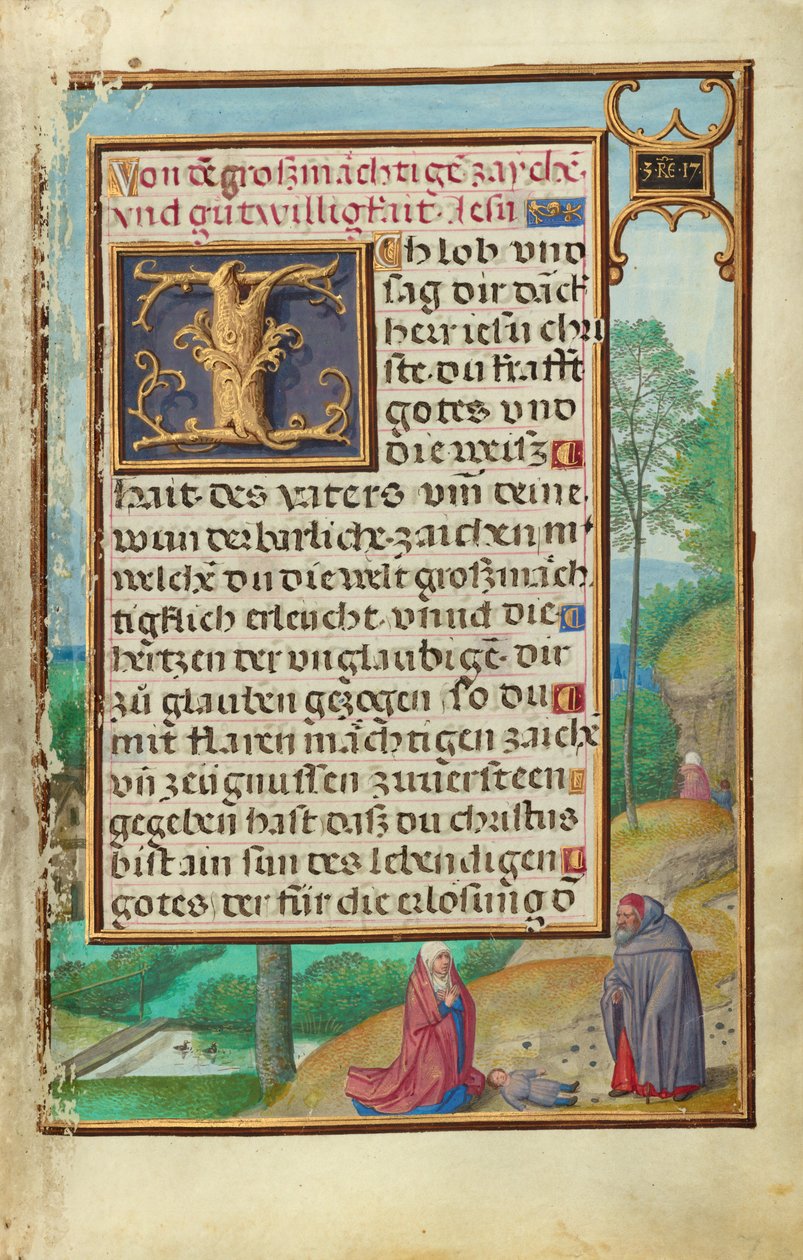 Von dē großmächtigē zaychē·
vnd gůtwilligkait· Jesu
·3·RE·17·
Ich lob vnd
sag dir dāck
herr iesu chri
ste· du krafft
gotes vnd
die weiß
hait· des vaters vm̄ deine
wunderbarlichē· zaichen m̄
welchē du die welt großmäch
tigklich erleucht· vnnd die
hertzen der vnglaubigē· dir
zů glauben gezogen so du
mit klaren mächtigen zaichē
vn̄ zeügnussen zuuersteen
gegeben hast daß du christus
bist ain sun des lebendigen
gotes, der für die erlösung d̄